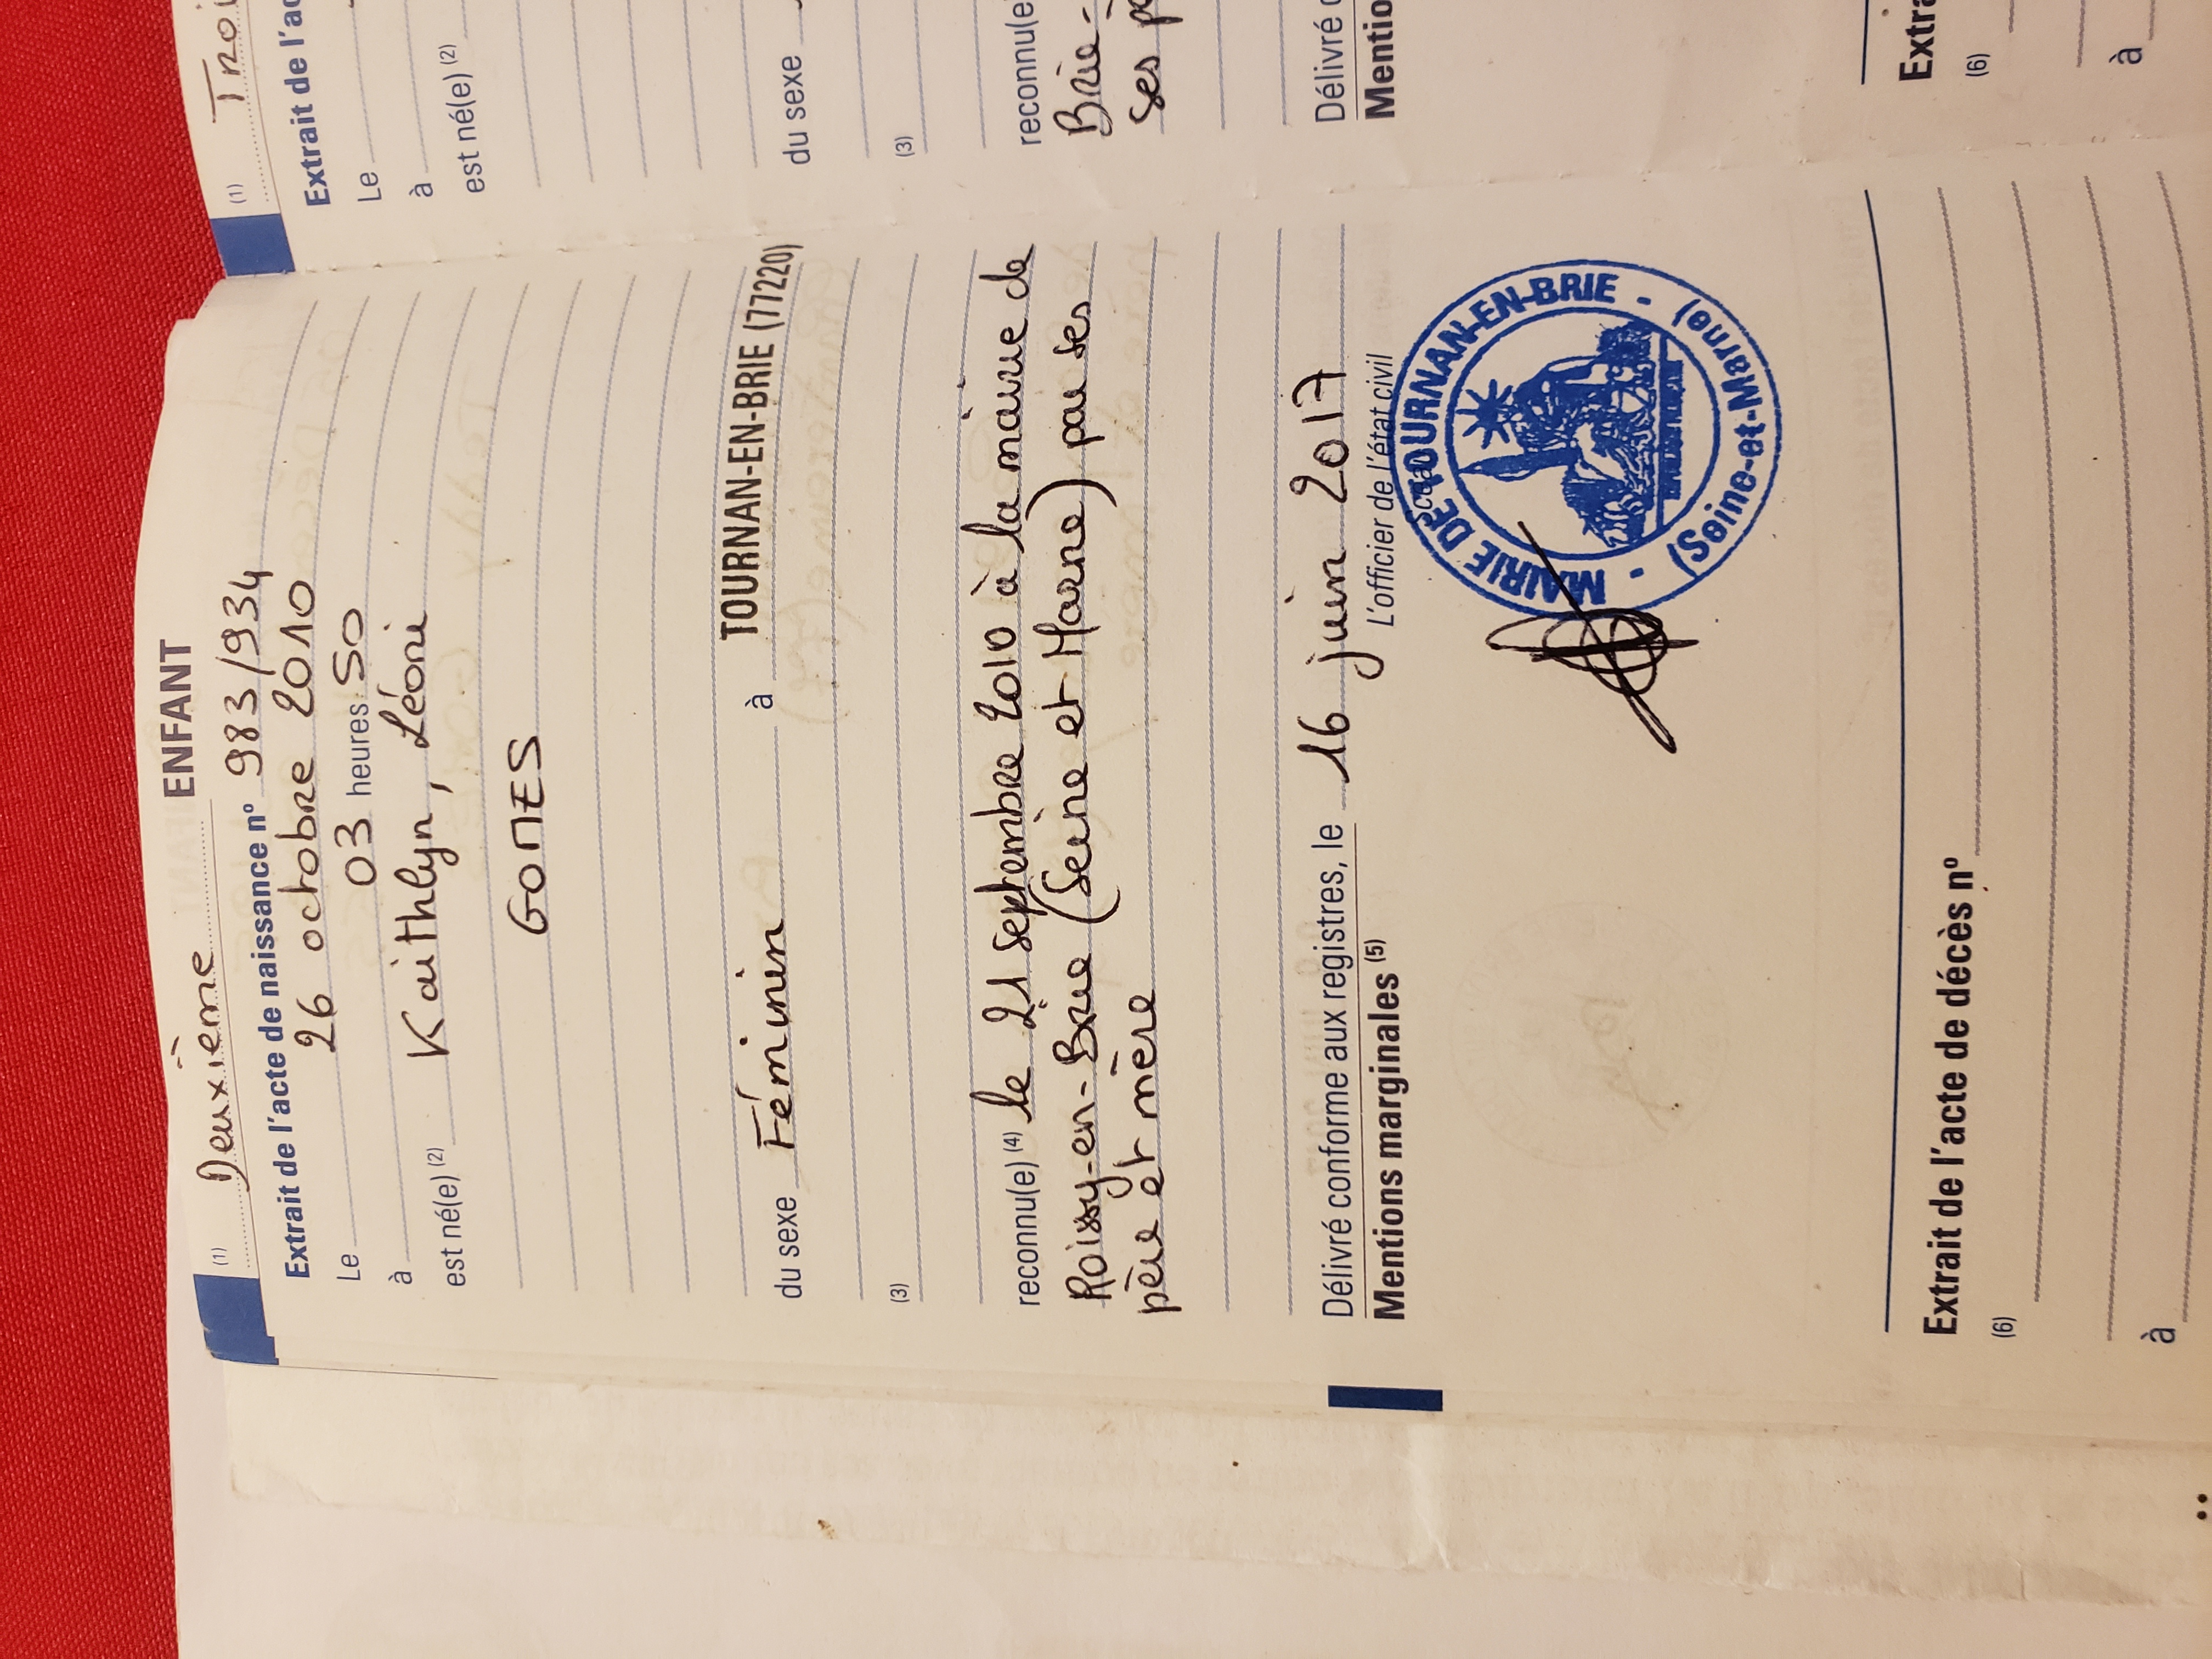 (1) Deuxième ENFANT
Extrait de l'acte de naissance n° 983/934
Le 26 octobre 2010
à 03 heures 50
est né(e) (2) Kaithlyn, Léonie
GOMES
du sexe Féminin à TOURNAN-EN-BRIE (77220)
(3)
reconnu(e) (4) le 21 septembre 2010 à la mairie de
Roissy-en-Brie (Seine et Marne) par ses
père et mère
Délivré conforme aux registres, le 16 juin 2017
Mentions marginales (5) L'officier de l'état civil
Sceau
MAIRIE DE TOURNAN-EN-BRIE - (Seine-et-Marne) -
Extrait de l'acte de décès n°
(6)
à
(1) Troi
Extrait de l'ac
Le
à
est né(e) (2)
du sexe
(3)
reconnu(e
Brie-
ses p
Délivré c
Mentio
Extra
(6)
à